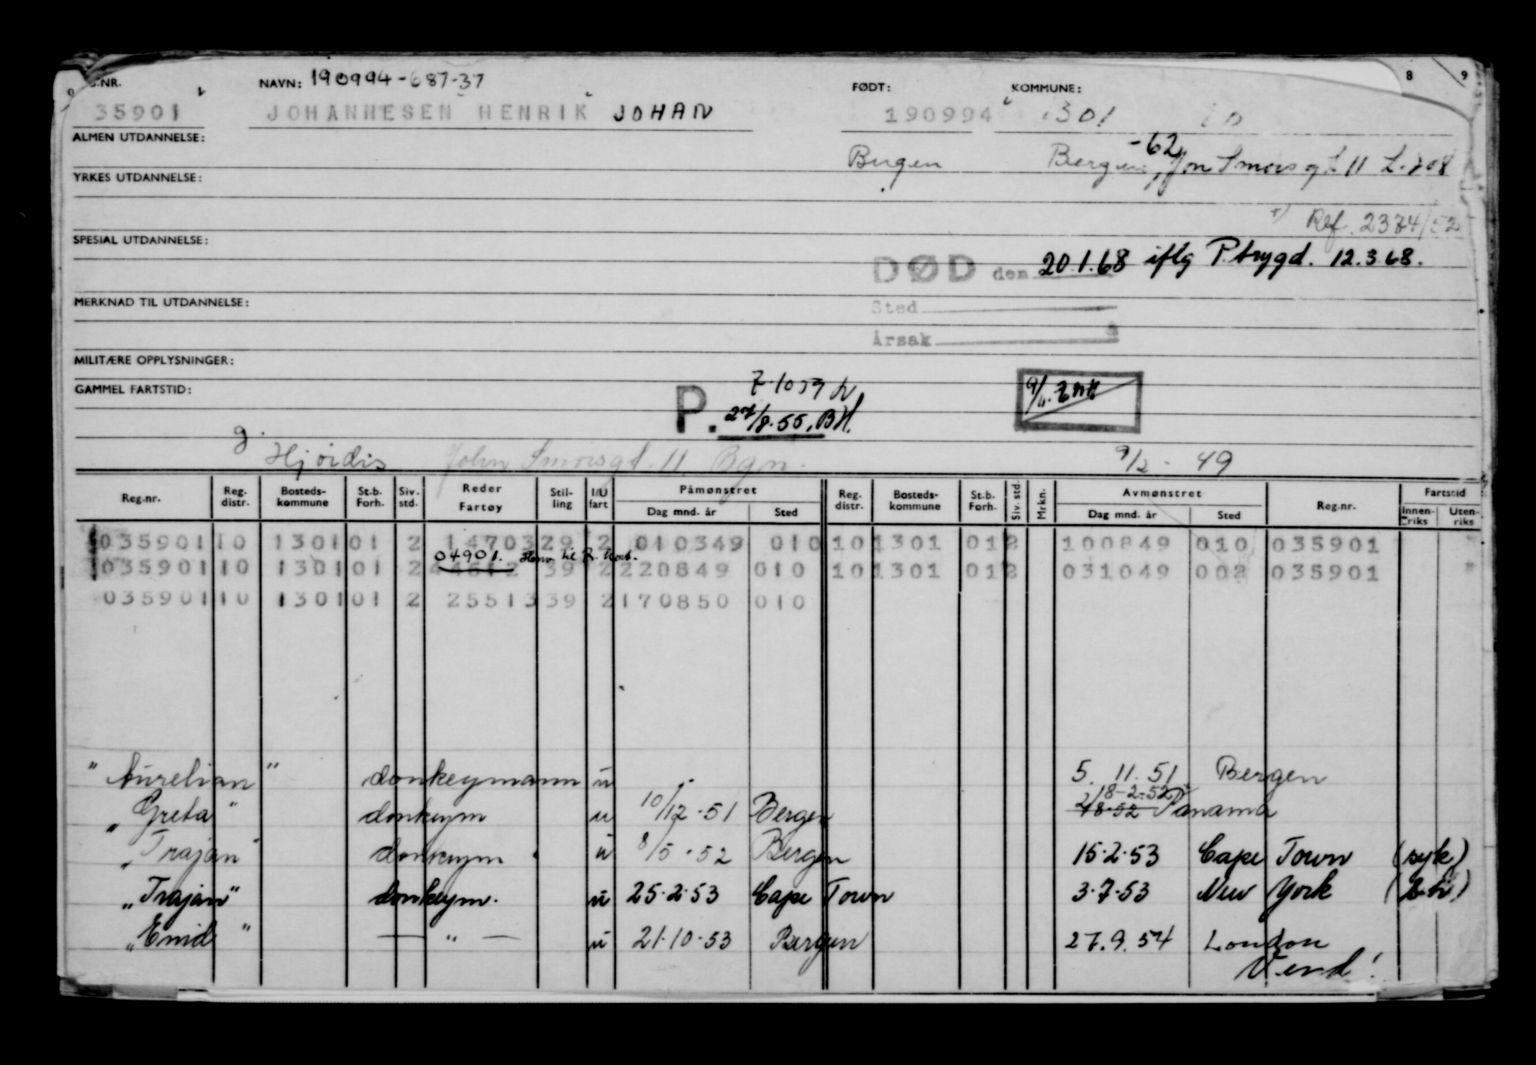 S.NR. NAVN: 190994-687-37 FØDT: KOMMUNE: 8 9
35901 JOHANNESEN HENRIK JOHAN 190994 1301
ALMEN UTDANNELSE:
-62
Bergen Bergen, Jon Smørs gt 11 L.708
YRKES UTDANNELSE:
Ref. 2374/52
SPESIAL UTDANNELSE:
DØD den 20.1.68 iflg P.trygd. 12.3.68.
MERKNAD TIL UTDANNELSE:
Sted
Årsak
MILITÆRE OPPLYSNINGER:
GAMMEL FARTSTID:
P. 27/8.55. BH.
g. Hjørdis John Smørsgt. 11 Bgn. 9/2 - 49
Reg.nr. Reg. distr. Bosteds- kommune St.b. Forh. Siv. std. Reder Fartøy Stil- ling I/U fart Påmønstret Dag mnd. år Sted Reg. distr. Bosteds- kommune St.b. Forh. Siv. std. Mrkn. Avmønstret Dag mnd. år Sted Reg.nr. Fartstid Innen- riks Uten- riks
035901 10 1301 01 2 14703 29 2 010349 010 10 1301 01 2 100849 010 035901
04901.
035901 10 1301 01 2 39 2 220849 010 10 1301 01 2 031049 002 035901
035901 10 1301 01 2 25513 39 2 170850 010
"Aurelian" donkeymann u 5. 11. 51 Bergen
18-2-52
"Greta" donkeym u 10/12-51 Bergen Panama
"Trajan" donkeym u 8/5-52 Bergen 15-2-53 Cape Town (syk)
"Trajan" donkeym. u 25-2-53 Cape Town 3-7-53 New York
"Enid" — " — u 21-10-53 Bergen 27.9.54 London
Vend!